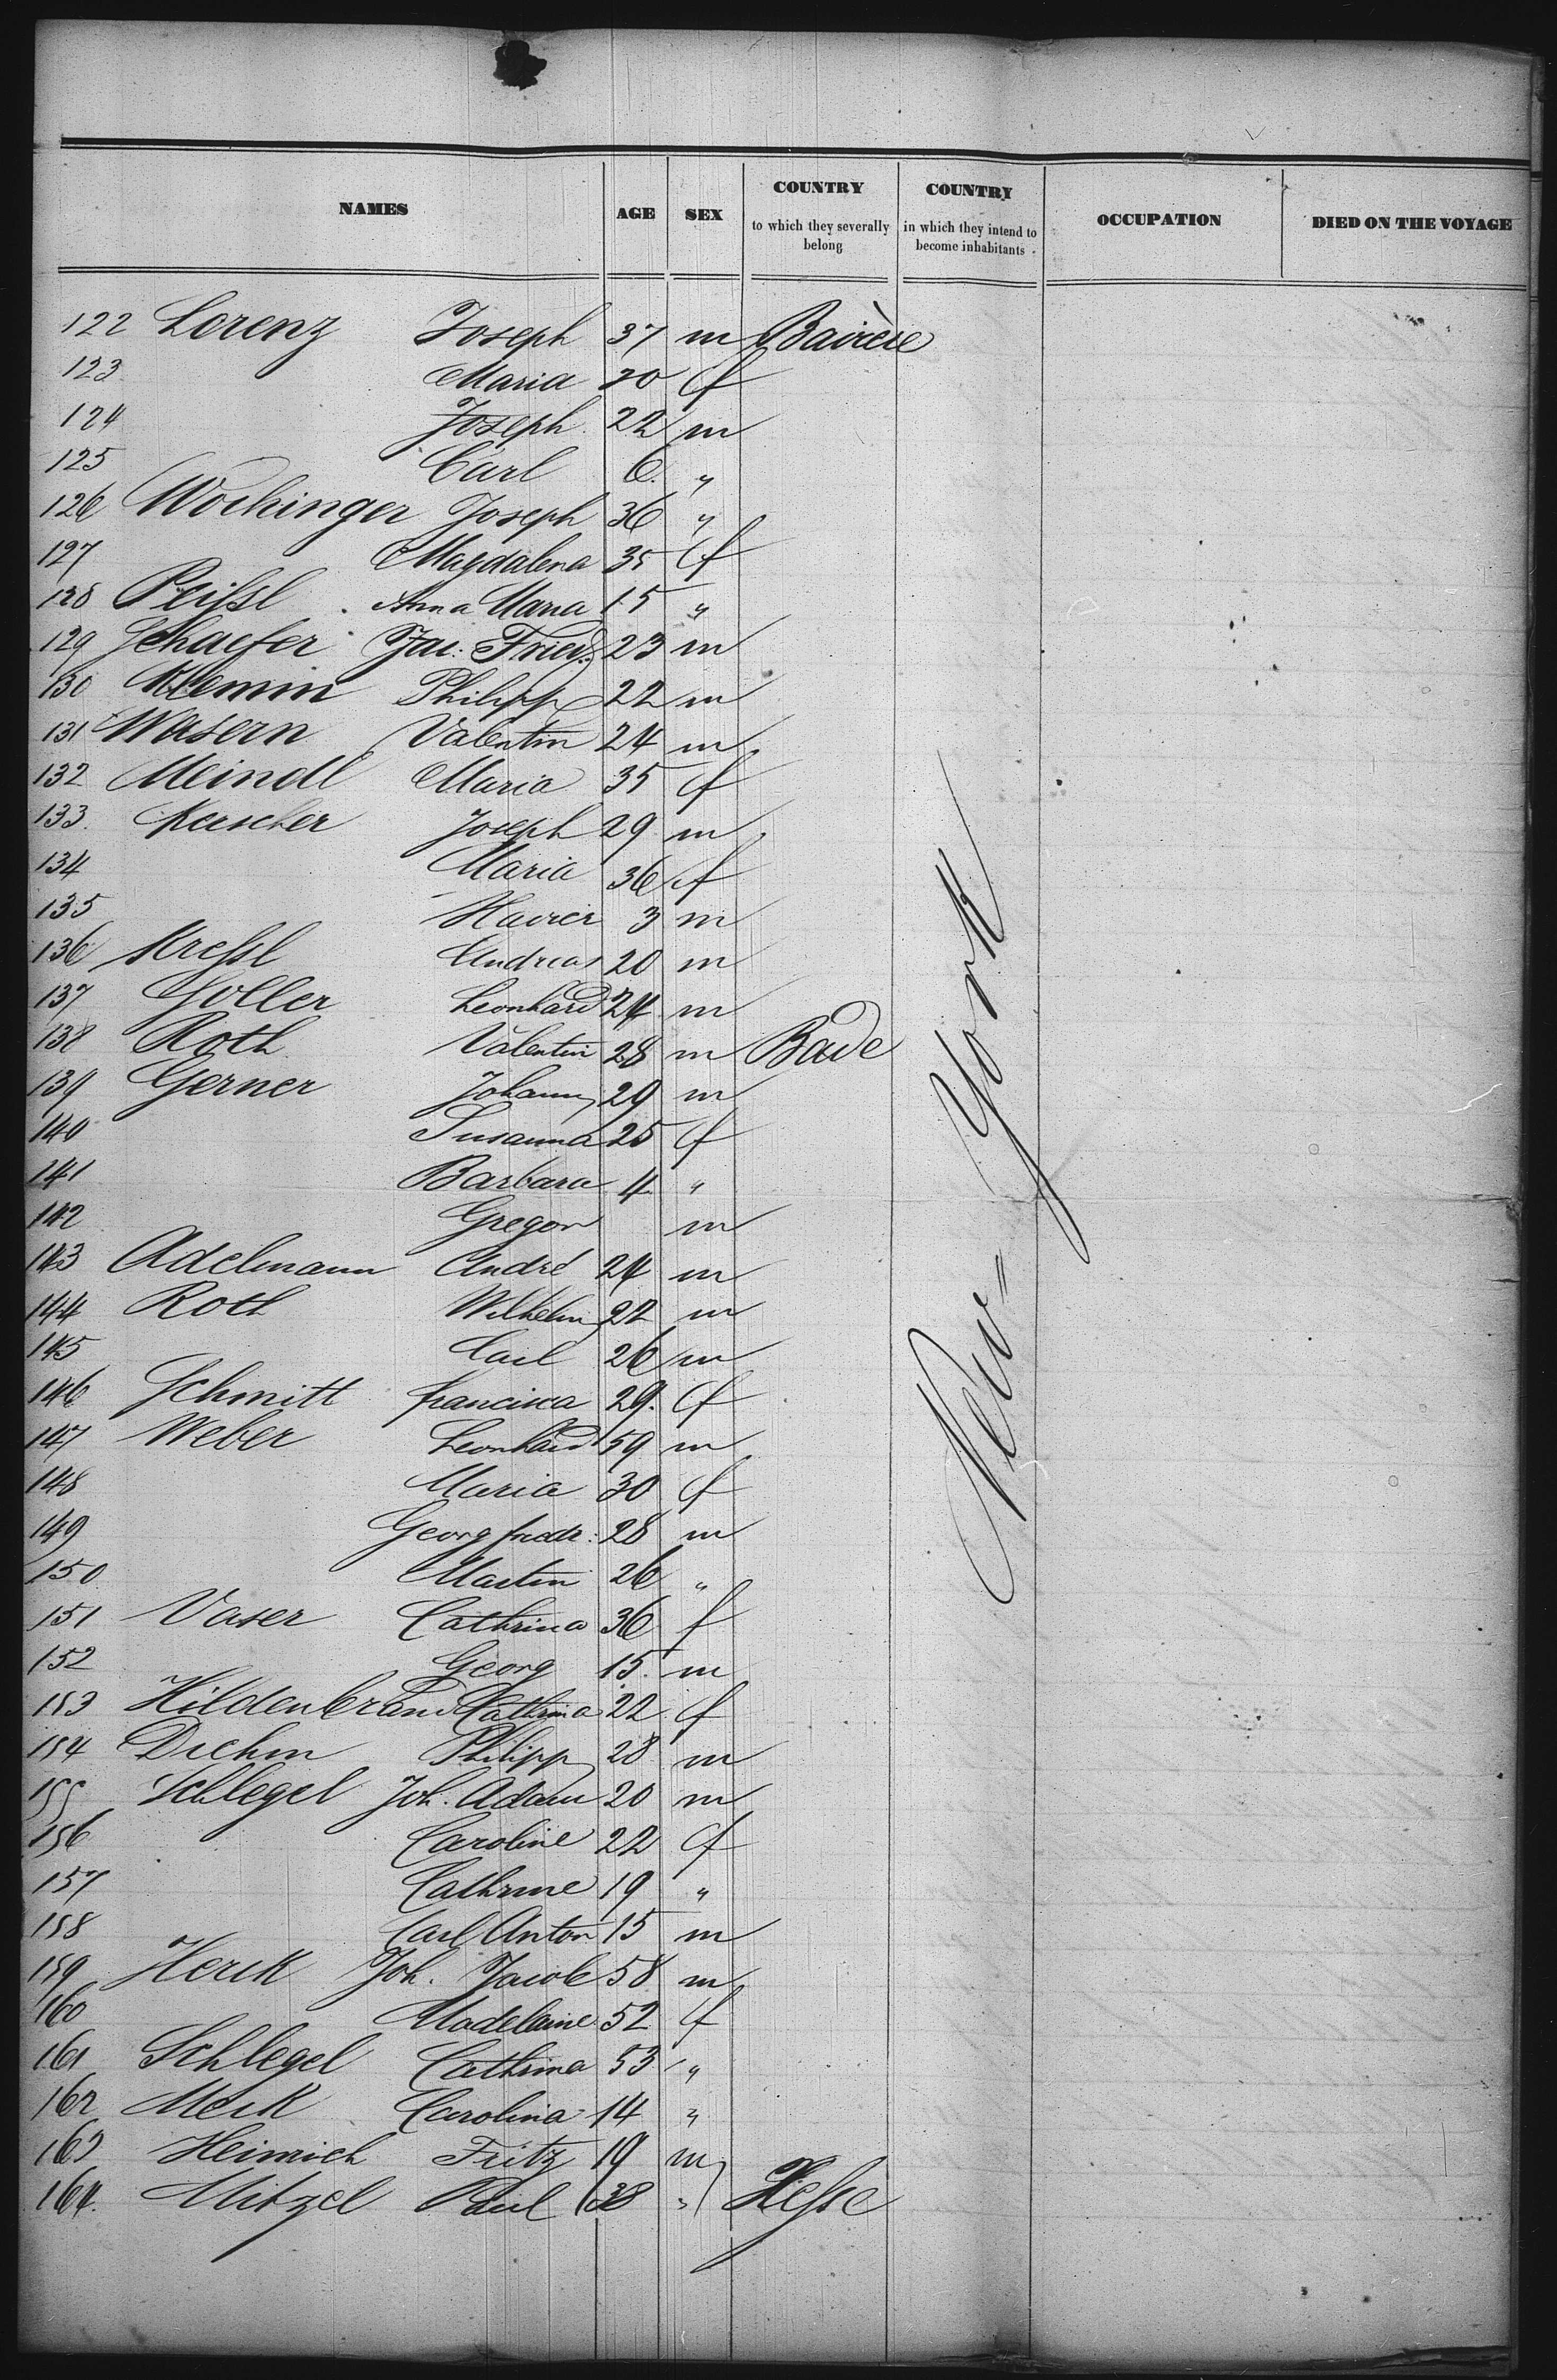 NAMES AGE SEX COUNTRY to which they severally belong COUNTRY in which they intend to become inhabitants OCCUPATION DIED ON THE VOYAGE
122 Lorenz Joseph 37 m Bavière
123 Maria 20 f
124 Joseph 22 m
125 Carl 6 "
126 Wochinger Joseph 36 "
127 Magdalena 35 f
128 Peißl Anna Maria 15 "
129 Schaefer Jac. Fried. 23 m
130 Klemin Philipp 22 m
131 Wasern Valentin 24 m
132 Meindl Maria 35 f
133 Kerscher Joseph 29 m
134 Maria 36 f
135 Xavier 3 m
136 Kreßl Andreas 20 m
137 Goller Leonhard 24 m
138 Roth Valentin 28 m Bade
139 Gerner Johann 29 m
140 Susanna 25 f
141 Barbara 4 "
142 Gregor m
143 Adelmann André 24 m
144 Roth Wilhelm 22 m
145 Carl 26 m
146 Schmitt francisca 29 f
147 Weber Leonhard 59 m
148 Maria 30 f
149 Georg friedr: 28 m
150 Martin 26 "
151 Vaser Cathrina 36 f
152 Georg 15 m
153 Hildenbrand Cathrina 22 f
154 Diehm Philipp 28 m
155 Schlegel Joh. Adam 20 m
156 Caroline 22 f
157 Cathrine 19 "
158 Carl Anton 15 m
159 Herck Joh. Jacob 58 m
160 Madelaine 52 f
161 Schlegel Cathrina 53 "
162 Merk Carolina 14 "
163 Heinrich Fritz 19 m
164. Mitzel Paul 38 " Hesse
New-York